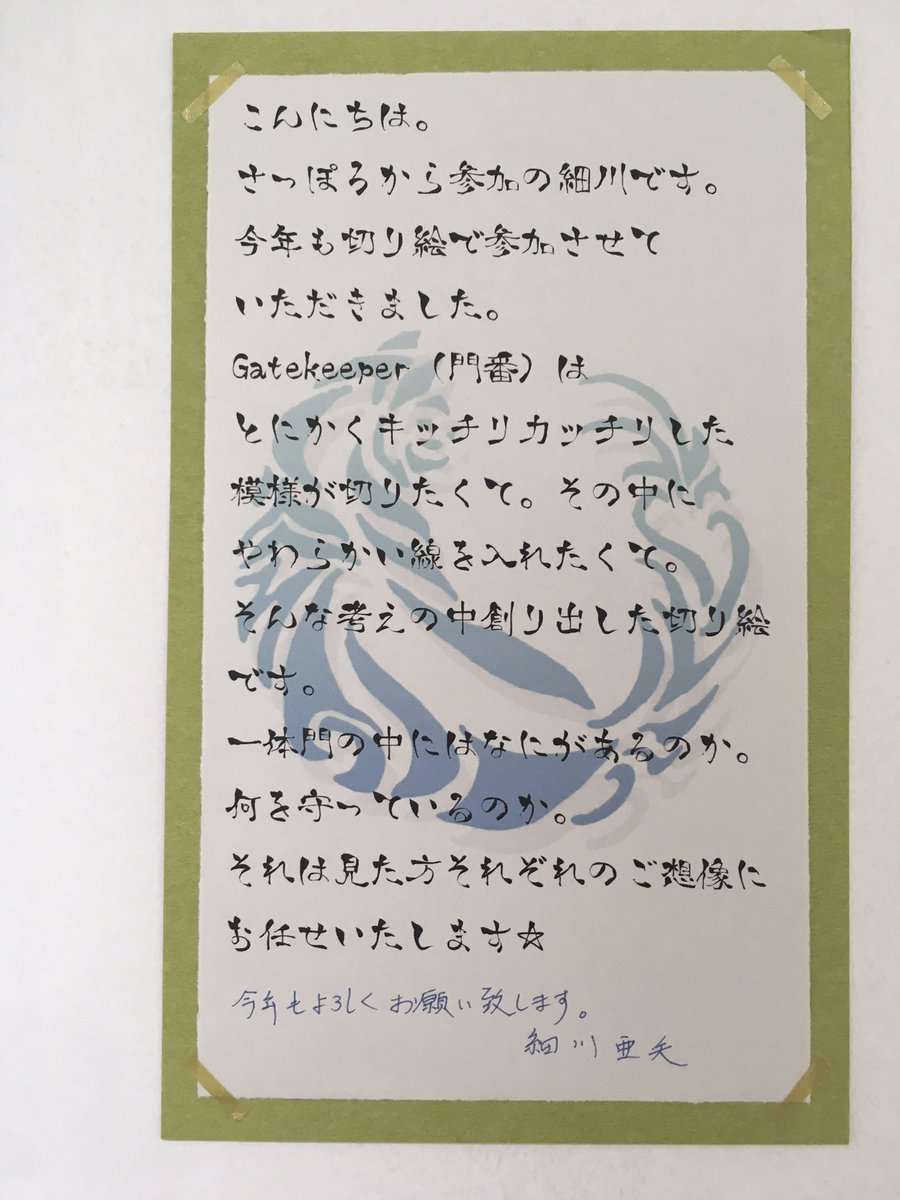 こんにちは。
さっぽろから参加の細川です。
今年も切り絵で参加させて
いただきました。
Gatekeeper（門番）は
とにかくキッチリカッチリした
模様が切りたくて。その中に
やわらかい線を入れたくて。
そんな考えの中創り出した切り絵
です。
一体門の中にはなにがあるのか。
何を守っているのか。
それは見た方それぞれのご想像に
お任せいたします☆
今年もよろしくお願い致します。
細川亜矢